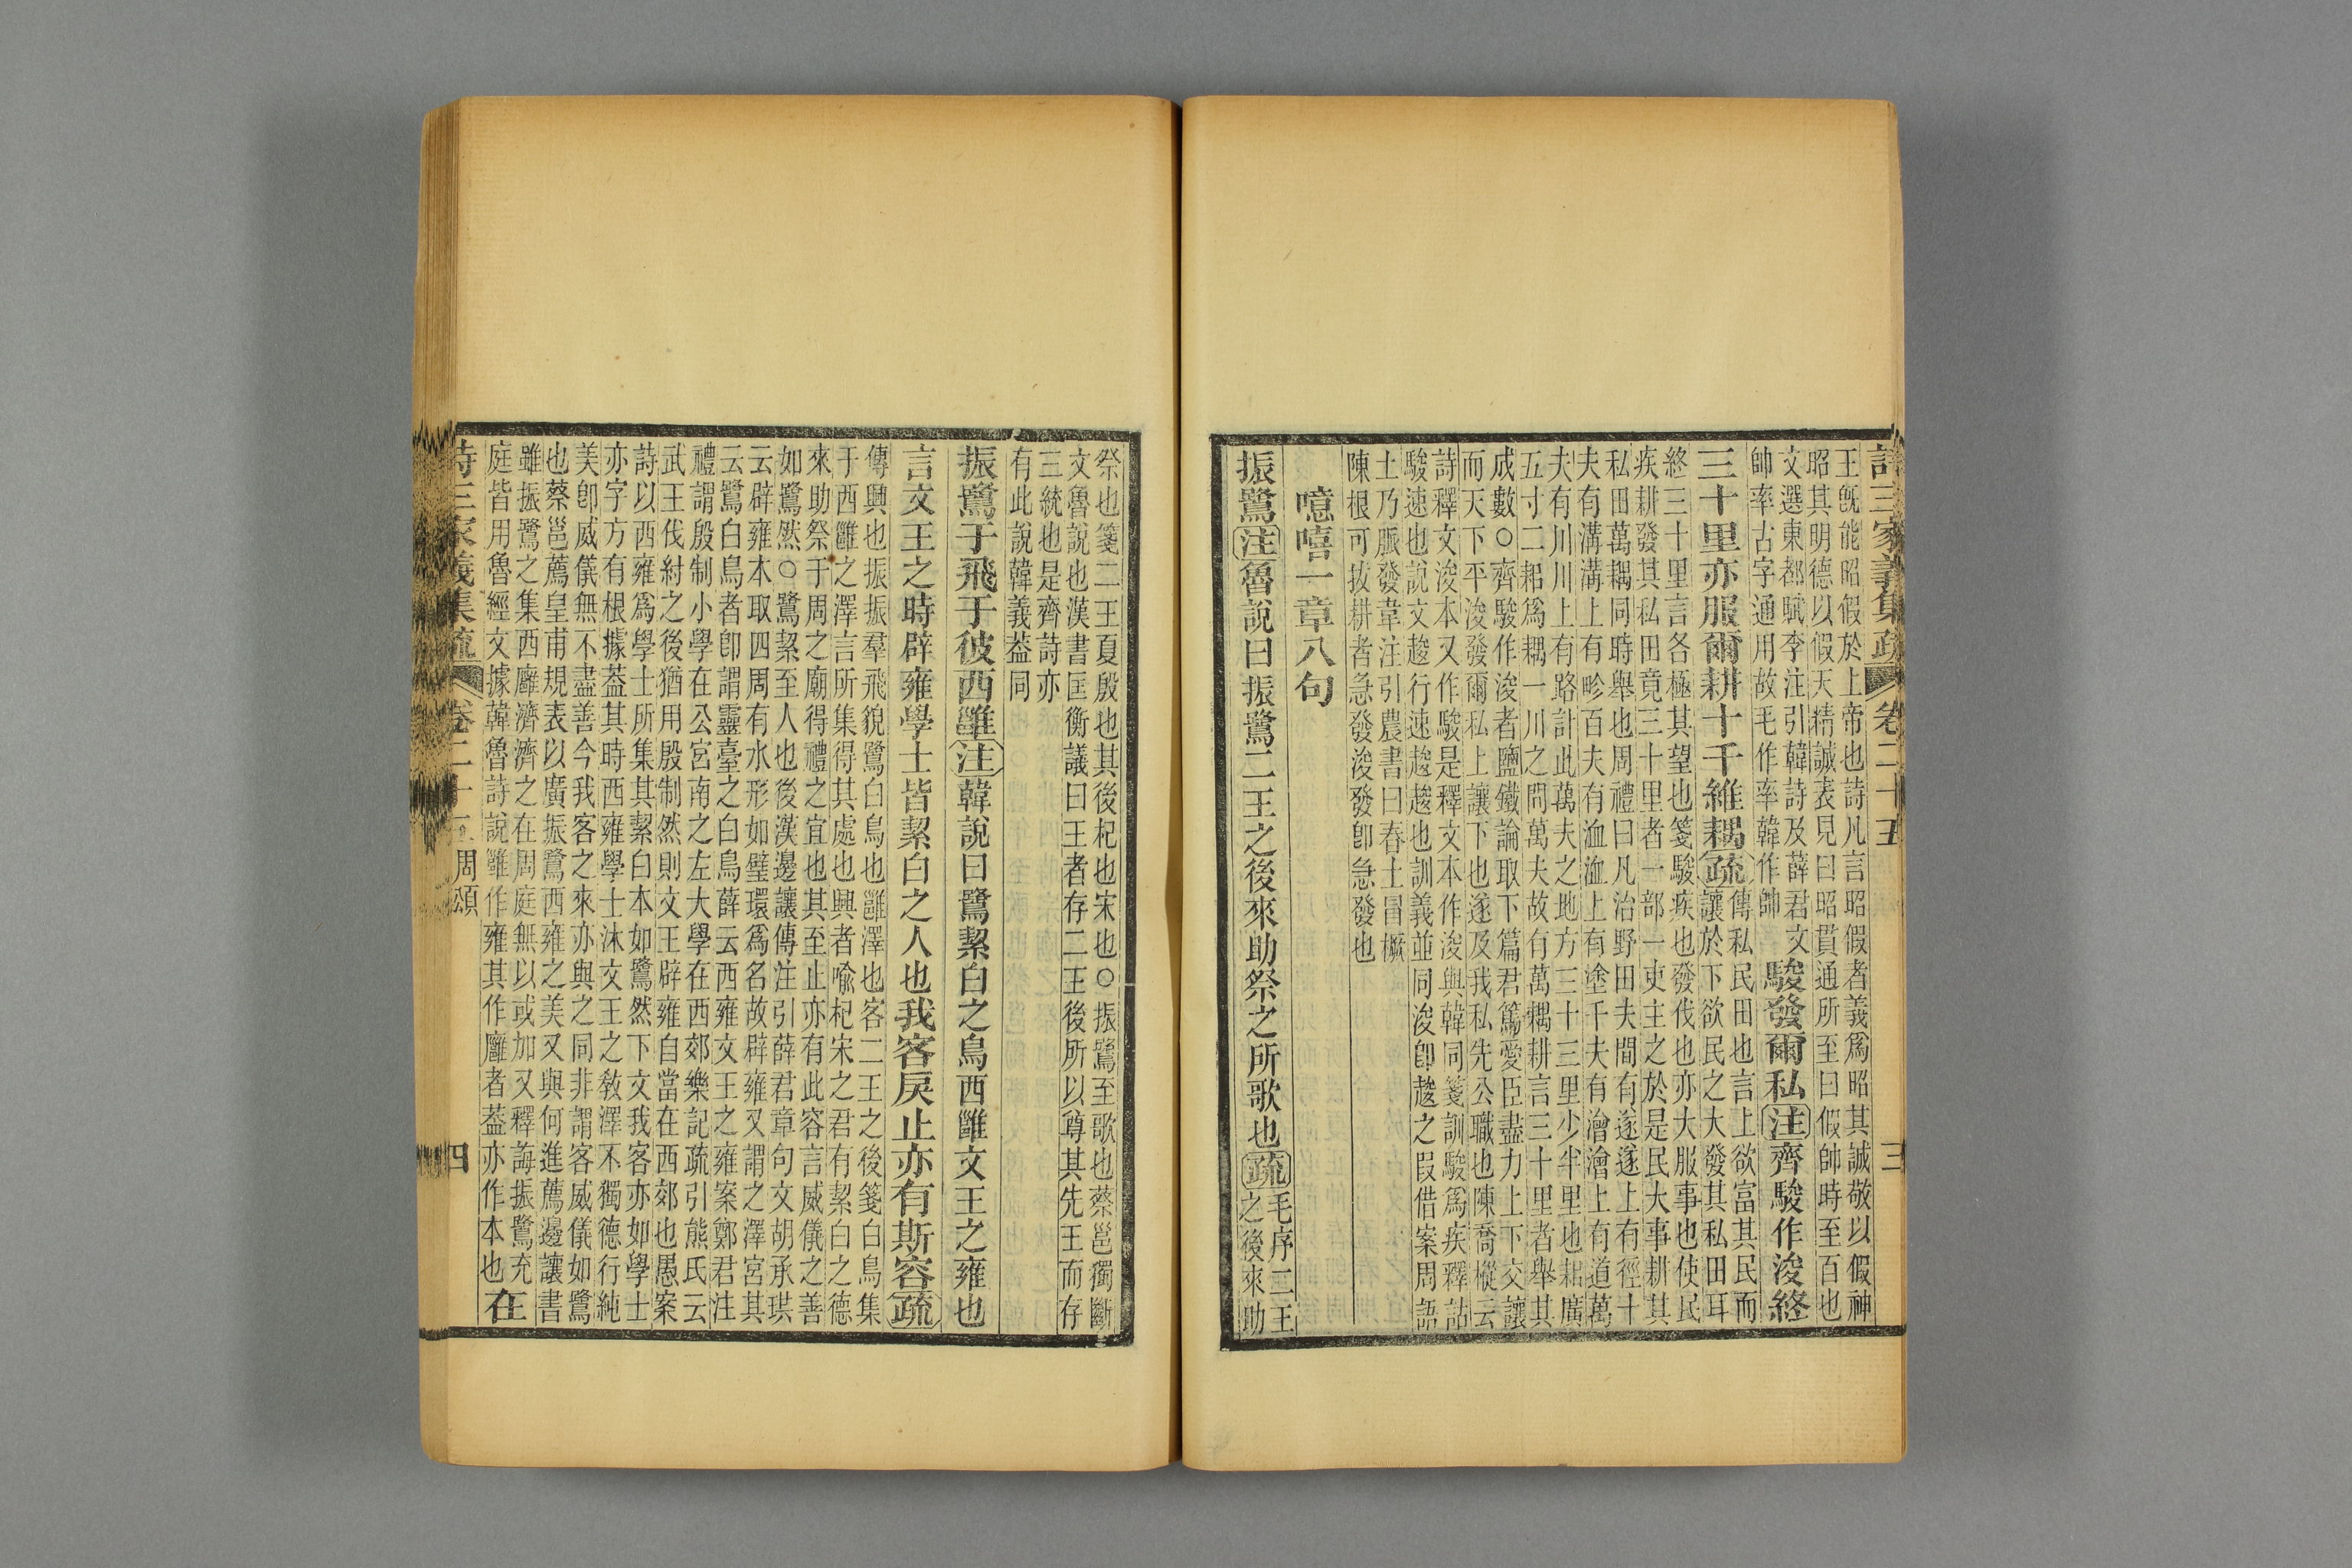 詩三家義集疏 卷二十五 三
王旣能昭假於上帝也詩凡言昭假者義爲昭其誠敬以假神
昭其明德以假天精誠表見曰昭貫通所至曰假帥時至百也
文選東都賦李注引韓詩及薛君文
帥率古字通用故毛作率韓作帥
駿發爾私注齊駿作浚終
三十里亦服爾耕十千維耦疏
傳私民田也言上欲富其民而
讓於下欲民之大發其私田耳
終三十里言各極其望也箋駿疾也發伐也亦大服事也使民
疾耕發其私田竟三十里者一部一吏主之於是民大事耕其
私田萬耦同時舉也周禮曰凡治野田夫間有遂遂上有徑十
夫有溝溝上有畛百夫有洫洫上有塗千夫有澮澮上有道萬
夫有川川上有路計此萬夫之地方三十三里少半里也耜廣
五寸二耜爲耦一川之間萬夫故有萬耦耕言三十里者舉其
成數○齊駿作浚者鹽鐵論取下篇君篤愛臣盡力上下交讓
而天下平浚發爾私上讓下也遂及我私先公職也陳喬樅云
詩釋文浚本又作駿是釋文本作浚與韓同箋訓駿爲疾釋詁
駿速也說文趁行速趁趁也訓義並同浚卽趁之叚借案周語
土乃脈發韋注引農書曰春土冒橛
陳根可拔耕者急發浚發卽急發也
噫嘻一章八句
振鷺注魯說曰振鷺二王之後來助祭之所歌也疏
毛序二王
之後來助
祭也箋二王夏殷也其後杞也宋也○振鷺至歌也蔡邕獨斷
文魯說也漢書匡衡議曰王者存二王後所以尊其先王而存
三統也是齊詩亦
有此說韓義葢同
振鷺于飛于彼西雝注韓說曰鷺絜白之鳥西雝文王之雍也
言文王之時辟雍學士皆絜白之人也我客戾止亦有斯容疏
傳興也振振羣飛貌鷺白鳥也雝澤也客二王之後箋白鳥集
于西雝之澤言所集得其處也興者喻杞宋之君有絜白之德
來助祭于周之廟得禮之宜也其至止亦有此容言威儀之善
如鷺然○鷺絜至人也後漢邊讓傳注引薛君章句文胡承珙
云辟雍本取四周有水形如璧環爲名故辟雍又謂之澤宮其
云鷺白鳥者卽謂靈臺之白鳥薛云西雍文王之雍案鄭君注
禮謂殷制小學在公宮南之左大學在西郊樂記疏引熊氏云
武王伐紂之後猶用殷制然則文王辟雍自當在西郊也愚案
詩以西雍爲學士所集其絜白本如鷺然下文我客亦如學士
亦字方有根據葢其時西雍學士沐文王之敎澤不獨德行純
美卽威儀無不盡善今我客之來亦與之同非謂客威儀如鷺
也蔡邕薦皇甫規表以廣振鷺西雍之美又與何進薦邊讓書
雖振鷺之集西廱濟濟之在周庭無以或加又釋誨振鷺充
庭皆用魯經文據韓魯詩說雝作雍其作廱者葢亦作本也在
詩三家義集疏 卷二十五 周頌 四